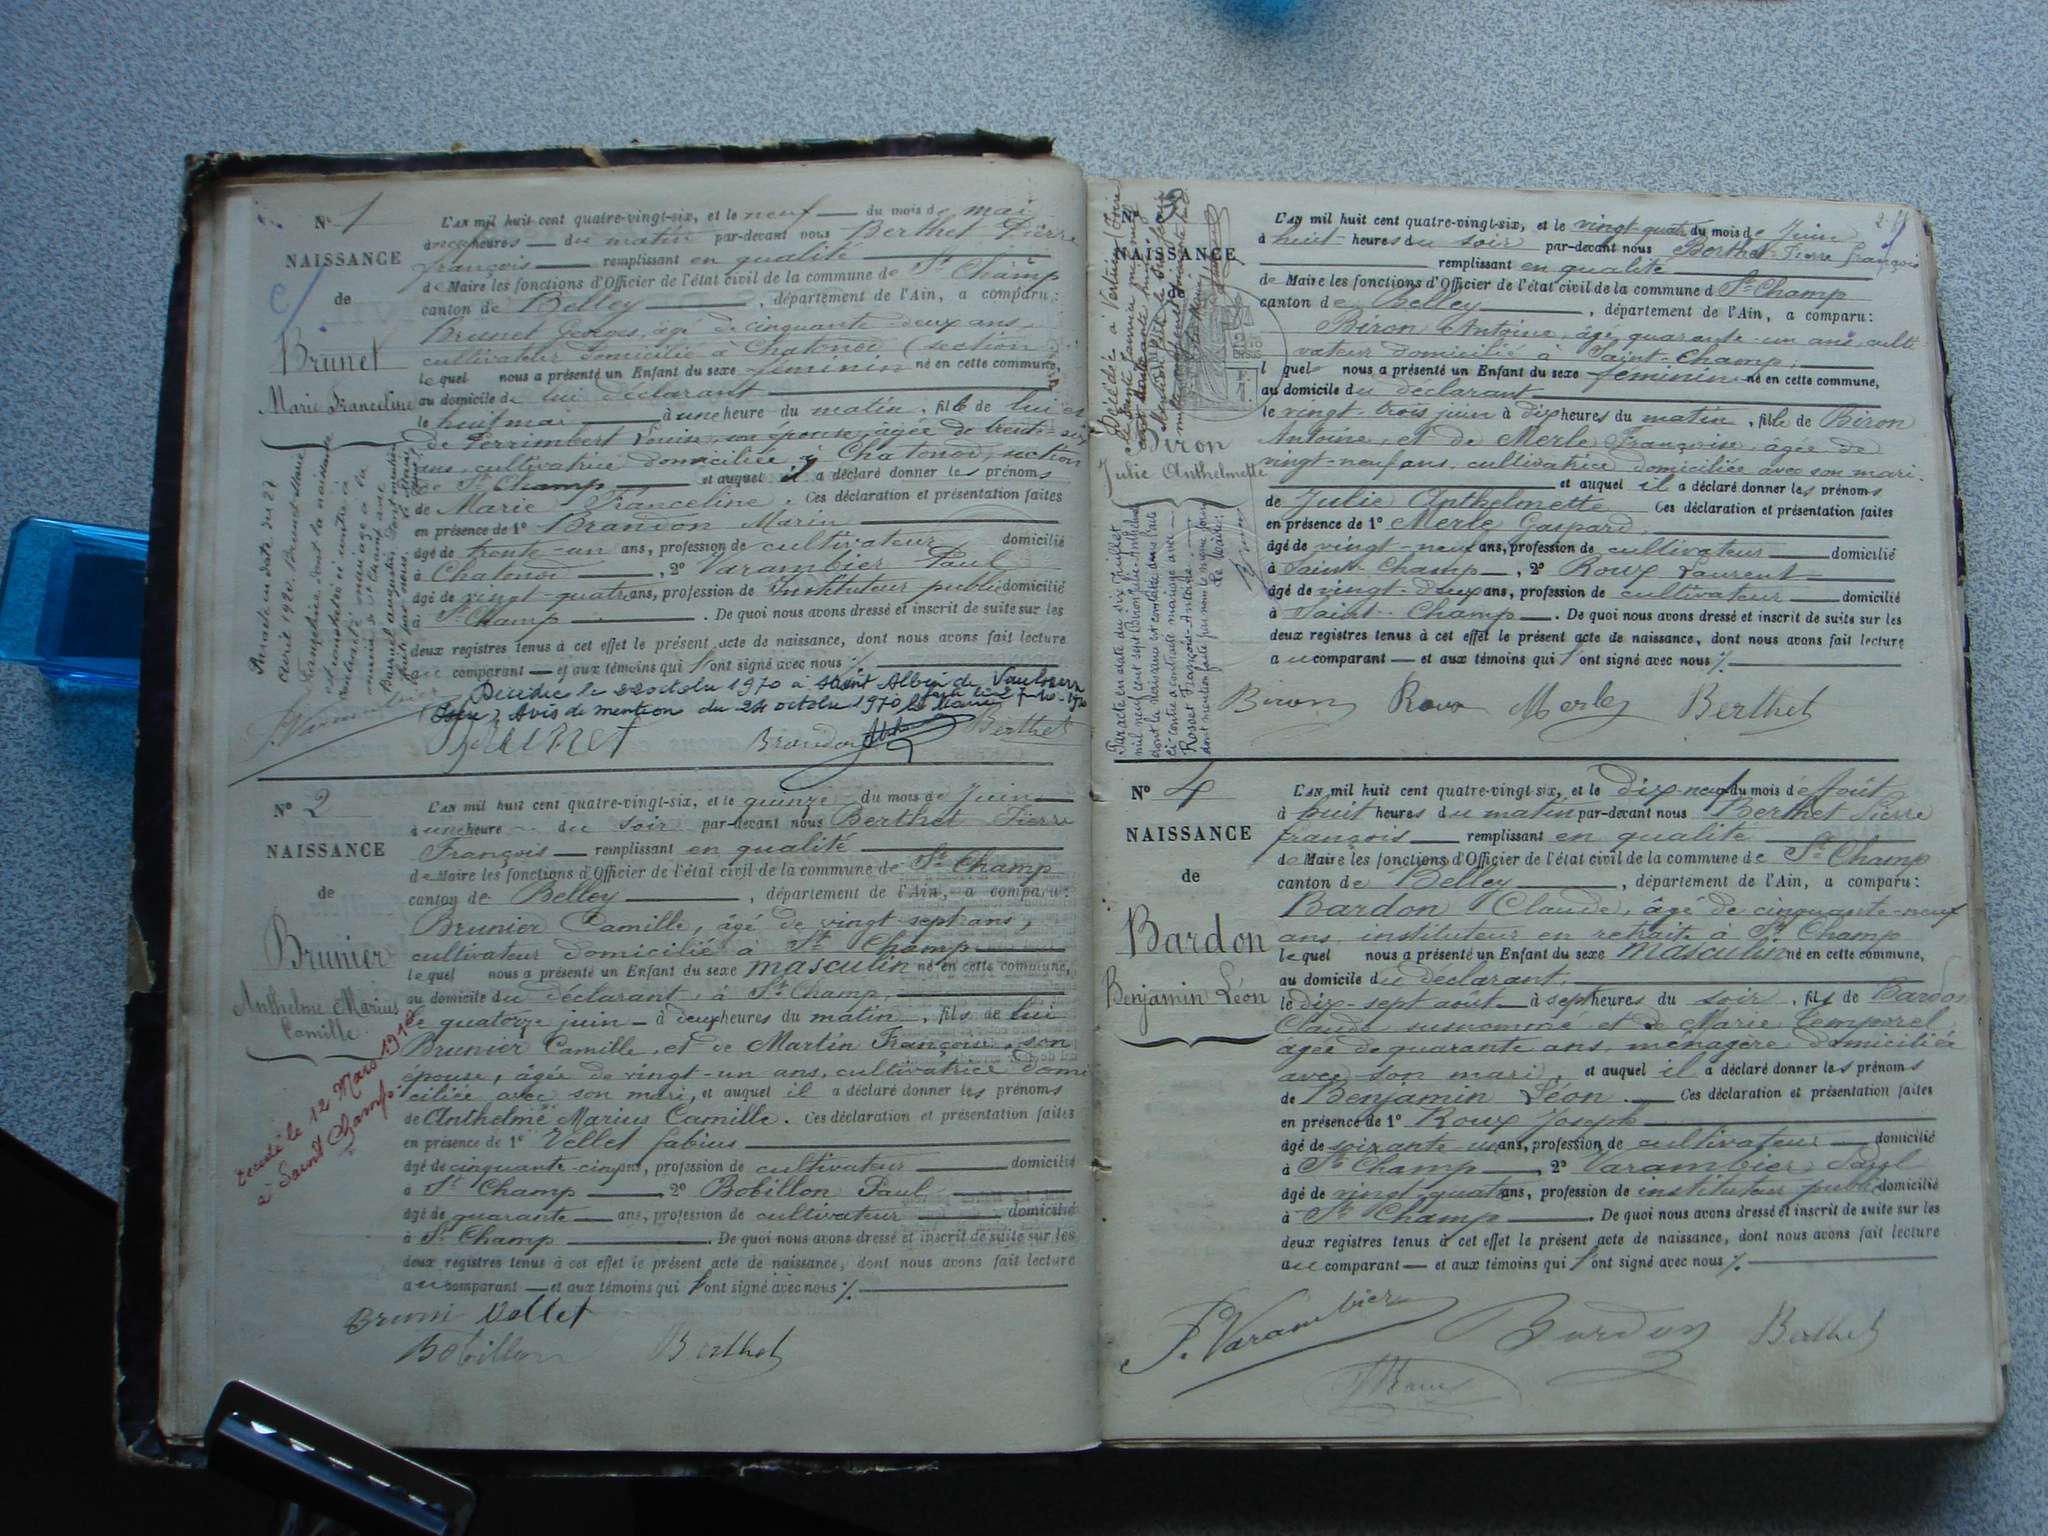 N° 1
NAISSANCE
de
Brunet
Marie Franceline
L'AN mil huit cent quatre-vingt-six, et le neuf du mois de mai
à neuf heures du matin par-devant nous Berthet Pierre
françois remplissant en qualité
de Maire les fonctions d'Officier de l'état civil de la commune de St Champ
canton de Belley, département de l'Ain, a comparu:
Brunet Georges, âgé de cinquante-deux ans,
cultivateur domicilié à Chatonod (section
lequel nous a présenté un Enfant du sexe féminin né en cette commune,
au domicile de lui déclarant
le huit mai à une heure du matin, fille de lui et
de Perrimbert Louise, son épouse, âgée de trente-six
ans, cultivatrice domiciliée à Chatonod, section
de St Champ et auquel il a déclaré donner les prénoms
de Marie Franceline. Ces déclaration et présentation faites
en présence de 1° Brandon Marin
âgé de trente-un ans, profession de cultivateur domicilié
à Chatonod, 2° Varambier Paul
âgé de vingt-quatre ans, profession de Instituteur public domicilié
à St Champ. De quoi nous avons dressé et inscrit de suite sur les
deux registres tenus à cet effet le présent acte de naissance, dont nous avons fait lecture
au comparant et aux témoins qui l'ont signé avec nous %.
Décédée le 22 octobre 1970 à Saint Albin de Vaulserre
(Isère) Avis de mention du 24 octobre 1970
P. Varambier
Brunet Brandon Berthet
N° 2
NAISSANCE
de
Brunier
Anthelme Marius
Camille
décédé le 12 Mars
à Saint Champ
L'AN mil huit cent quatre-vingt-six, et le quinze du mois de Juin
à une heure du soir par-devant nous Berthet Pierre
François remplissant en qualité
de Maire les fonctions d'Officier de l'état civil de la commune de St Champ
canton de Belley, département de l'Ain, a comparu:
Brunier Camille, âgé de vingt sept ans,
cultivateur domicilié à St Champ
lequel nous a présenté un Enfant du sexe masculin né en cette commune,
au domicile du déclarant, à St Champ,
le quatorze juin à deux heures du matin, fils de lui
Brunier Camille, et de Martin Françoise, son
épouse, âgée de vingt-un ans, cultivatrice domi
ciliée avec son mari, et auquel il a déclaré donner les prénoms
de Anthelme Marius Camille. Ces déclaration et présentation faites
en présence de 1° Vellet fabius
âgé de cinquante-cinq ans, profession de cultivateur domicilié
à St Champ 2° Bobillon Paul
âgé de quarante ans, profession de cultivateur domicilié
à St Champ. De quoi nous avons dressé et inscrit de suite sur les
deux registres tenus à cet effet le présent acte de naissance, dont nous avons fait lecture
au comparant et aux témoins qui l'ont signé avec nous %.
Bruni Vellet
Bobillon Berthet
N° 3
NAISSANCE
Biron
Julie Anthelmette
L'AN mil huit cent quatre-vingt-six, et le vingt-quatre du mois de Juin
à huit heures du soir par-devant nous Berthet Pierre François
remplissant en qualité
de Maire les fonctions d'Officier de l'état civil de la commune d St Champ
canton de Belley, département de l'Ain, a comparu:
Biron Antoine, âgé quarante-un ans, culti
vateur domicilié à Saint-Champ,
lequel nous a présenté un Enfant du sexe féminin né en cette commune,
au domicile du déclarant
le vingt-trois juin à dix heures du matin, fille de Biron
Antoine, et de Merle Françoise, âgée de
vingt-neuf ans, cultivatrice domiciliée avec son mari.
et auquel il a déclaré donner les prénoms
de Julie Anthelmette Ces déclaration et présentation faites
en présence de 1° Merle Gaspard,
âgé de vingt-neuf ans, profession de cultivateur domicilié
à Saint-Champ, 2° Roux Laurent
âgé de vingt-deux ans, profession de cultivateur domicilié
à Saint-Champ. De quoi nous avons dressé et inscrit de suite sur les
deux registres tenus à cet effet le présent acte de naissance, dont nous avons fait lecture
au comparant et aux témoins qui l'ont signé avec nous %.
Biron Roux Merle Berthet
N° 4
NAISSANCE
de
Bardon
Benjamin Léon
L'AN mil huit cent quatre-vingt-six, et le dix-neuf du mois d'Août
à huit heures du matin par-devant nous Berthet Pierre
françois remplissant en qualité
de Maire les fonctions d'Officier de l'état civil de la commune de St Champ
canton de Belley, département de l'Ain, a comparu:
Bardon Claude, âgé de cinquante-neuf
ans, instituteur en retraite à St Champ
lequel nous a présenté un Enfant du sexe masculin né en cette commune,
au domicile du déclarant,
le dix-sept août à sept heures du soir, fils de Bardon
Claude susnommé et de Marie Temporel
âgée de quarante ans, ménagère domiciliée
avec son mari, et auquel il a déclaré donner les prénoms
de Benjamin Léon. Ces déclaration et présentation faites
en présence de 1° Roux Joseph
âgé de soixante un ans, profession de cultivateur domicilié
à St Champ, 2° Varambier Paul
âgé de vingt-quatre ans, profession de instituteur public domicilié
à St Champ. De quoi nous avons dressé et inscrit de suite sur les
deux registres tenus à cet effet le présent acte de naissance, dont nous avons fait lecture
au comparant et aux témoins qui l'ont signé avec nous %.
P. Varambier Bardon Berthet
Roux